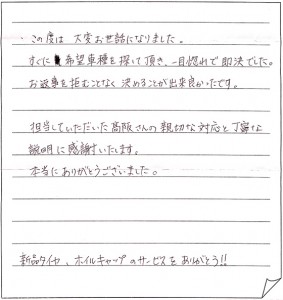 この度は大変お世話になりました。
すぐに希望車種を探して頂き、一目惚れで即決でした。
お返事を拒むことなく決めることが出来良かったです。
担当していただいた高阪さんの親切な対応と丁寧な
説明に感謝いたします。
本当にありがとうございました。
新品タイヤ、ホイルキャップのサービスをありがとう!!